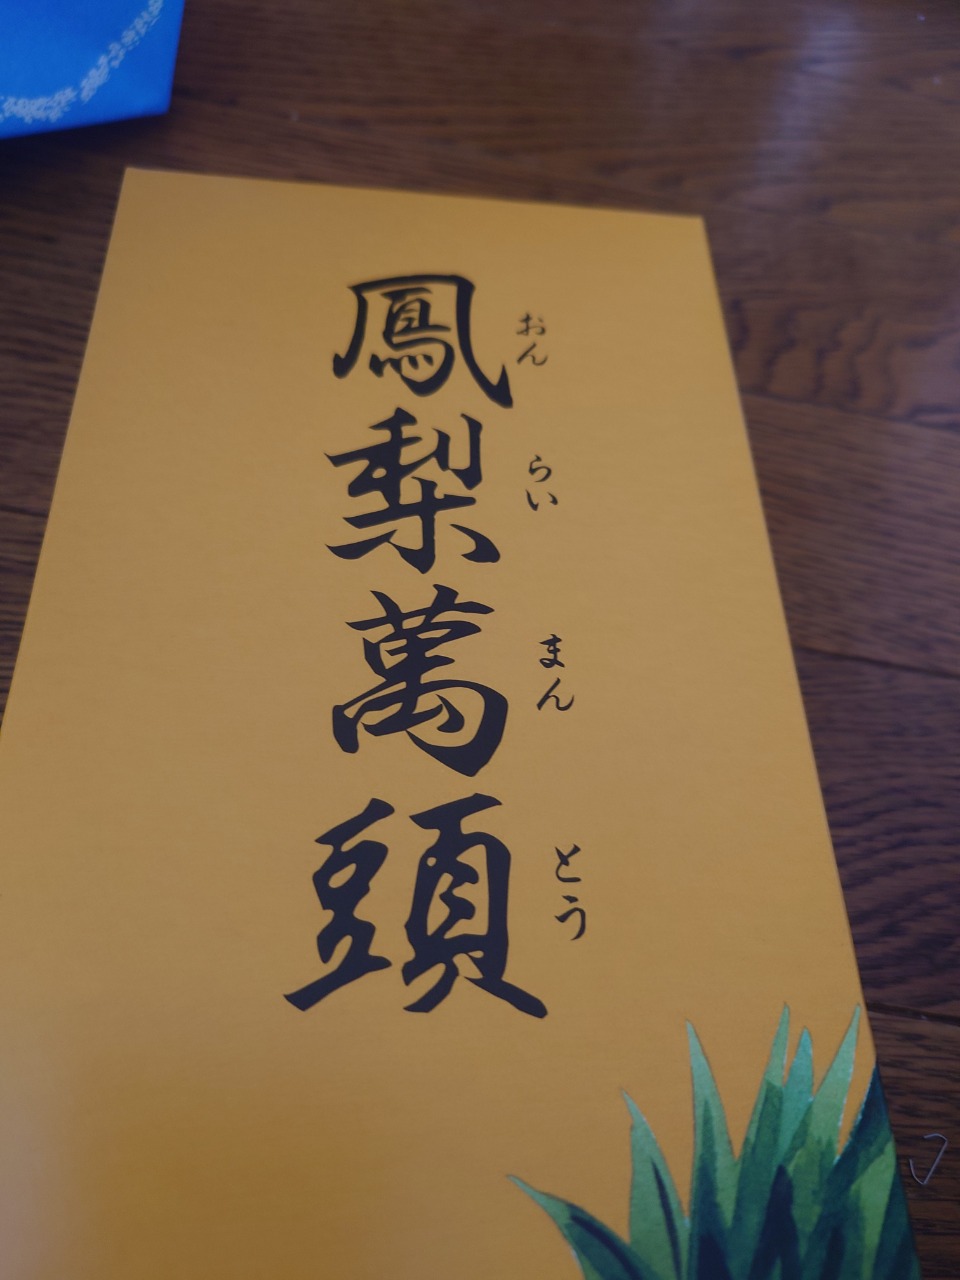 鳳梨萬頭
おんらいまんとう